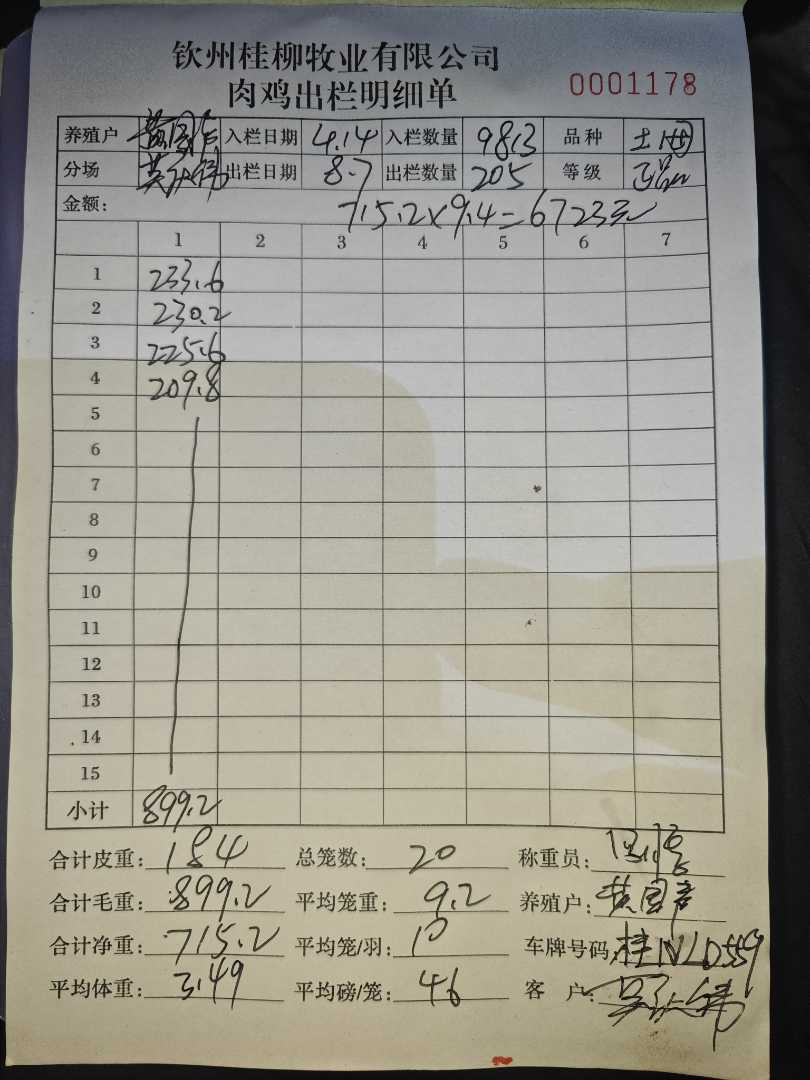 钦州桂柳牧业有限公司
肉鸡出栏明细单 0001178
养殖户 黄国 入栏日期 4.14 入栏数量 9813 品种 土
分场 出栏日期 8.7 出栏数量 205 等级 正品
金额: 715.2×9.4=6723元
1 2 3 4 5 6 7
1 233.6
2 230.2
3 225.6
4 209.8
5
6
7
8
9
10
11
12
13
14
15
小计 899.2
合计皮重: 184 总笼数: 20 称重员:
合计毛重: 899.2 平均笼重: 9.2 养殖户: 黄国
合计净重: 715.2 平均笼/羽: 10 车牌号码: 桂NLD559
平均体重: 3.49 平均磅/笼: 46 客户: